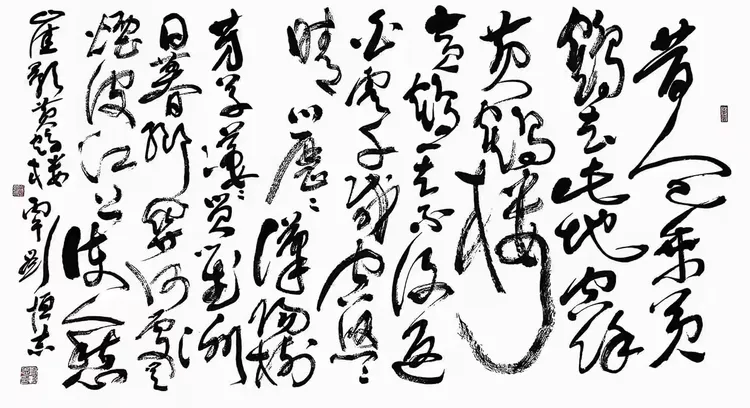 昔人已乘黄
鶴去此地空餘
黄鶴楼
黄鶴一去不復返
白雲千載空悠々
晴川歷々漢陽樹
芳草萋々鸚鵡洲
日暮鄉關何處是
煙波江上使人愁
崔顥黄鶴楼 劉恒志